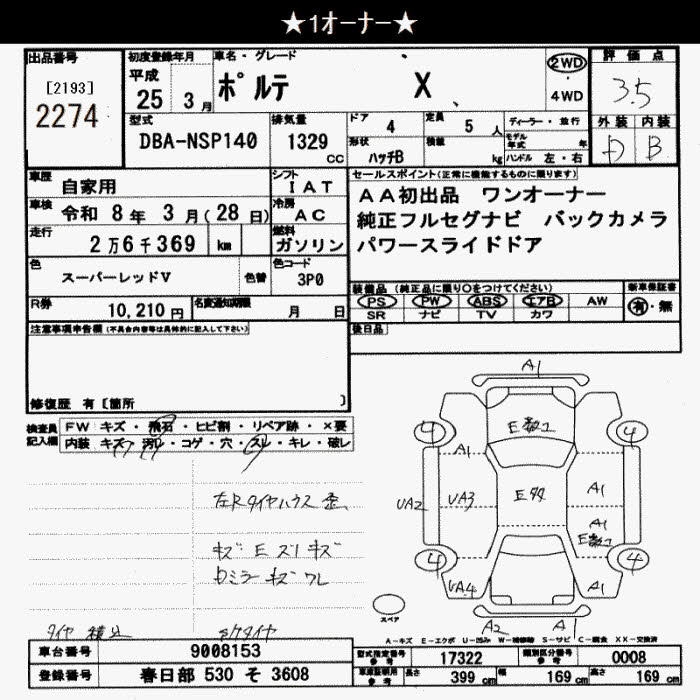 ★1オーナー★
出品番号
[2193]
2274
初度登録年月
平成
25 3月
車名・グレード
ポルテ X
2WD
・
4WD
評価点
3.5
外装 内装
D B
型式
DBA-NSP140
排気量
1329
CC
ドア 4
定員 5 人
形状 ハッチB
積載 kg
ディーラー・並行
モデル年式 年
ハンドル 左・右
車歴 自家用
シフト IAT
車検 令和 8年 3月(28日)
冷房 AC
走行 2万6千369 km
燃料 ガソリン
色 スーパーレッドV
色替
色コード 3P0
R券 10,210円
名変通知期限 月 日
セールスポイント(正常に機能するものに限ります)
AA初出品 ワンオーナー
純正フルセグナビ バックカメラ
パワースライドドア
装備品(純正品に限り○をつけてください)
PS PW ABS エアB AW
SR ナビ TV カワ
新車保証書
有・無
後日品
注意事項申告欄(不具合内容等は具体的に記入して下さい)
修復歴 有[箇所 ]
検査員記入欄
FW キズ・飛石・ヒビ割・リペア跡・×要
内装 キズ・汚レ・コゲ・穴・スレ・キレ・破レ
左Rタイヤハウス
キズ E ズレ キズ
ワレ
タイヤ 積込
A1
E数2
4 4
A1
UA2 UA3 E多 A1
A1
E数2
4 4
UA4 A1
A2 A1
スペア
A-キズ E-エクボ U-凹み W-補修跡 S-サビ C-腐食 XX-交換済
車台番号 9008153
登録番号 春日部 530 そ 3608
型式指定番号 参考 17322
類別区分番号 参考 0008
車庫証明用 参考 長さ 399 cm 幅 169 cm 高さ 169 cm